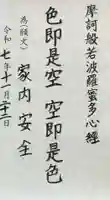 摩訶般若波羅蜜多心經
色即是空 空即是色
為(願文)
家内安全
令和
七年十一月二十三日